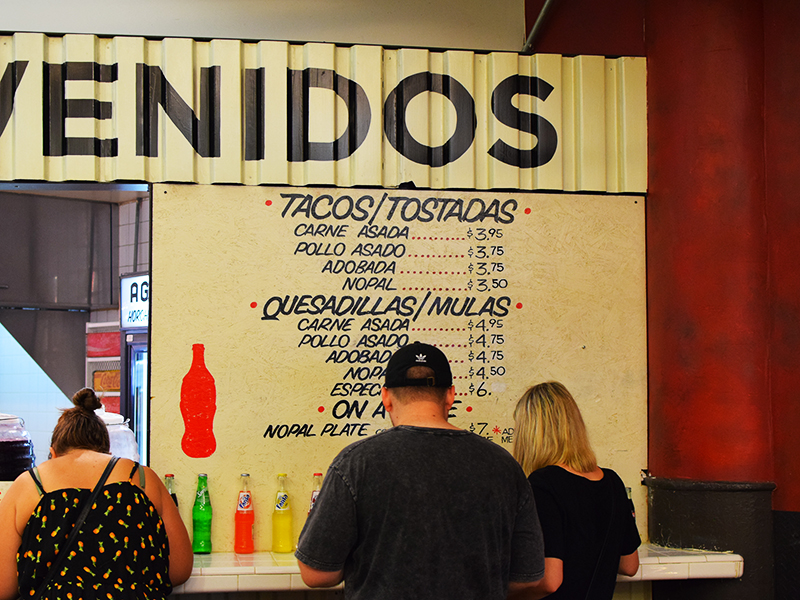 VENIDOS
TACOS/TOSTADAS
CARNE ASADA $3.95
POLLO ASADO $3.75
ADOBADA $3.75
NOPAL $3.50
QUESADILLAS/MULAS
CARNE ASADA $4.95
POLLO ASADO $4.75
ADOBADA $4.75
NOPA $4.50
ESPEC $6.
ON A E
NOPAL PLATE $7. *AD
ME
AG
HORCH
adidas